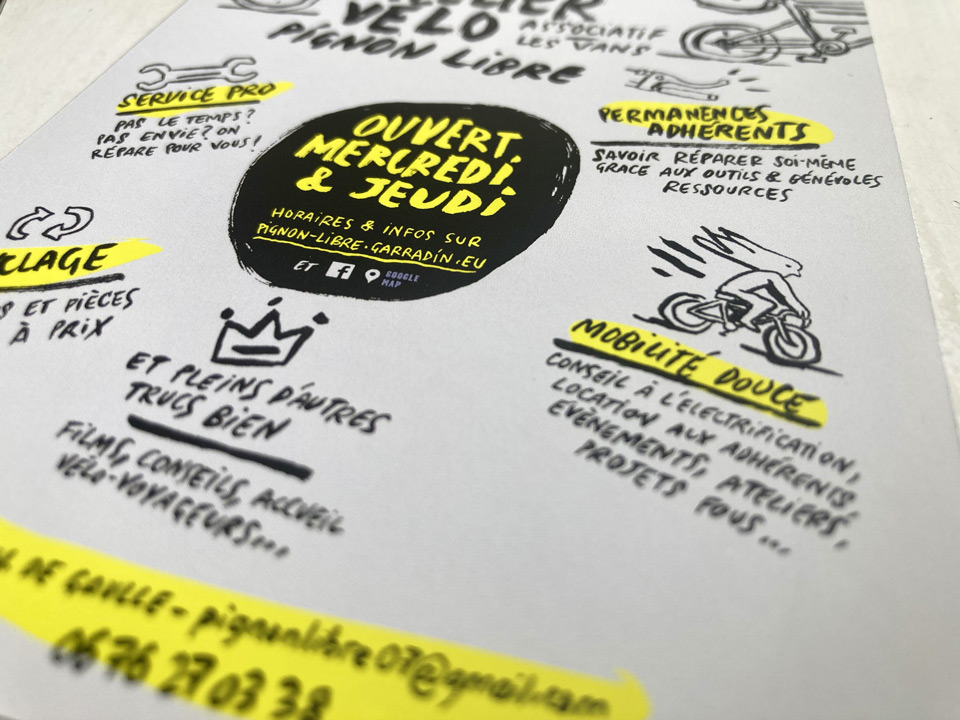 VÉLO
ASSOCIATIF
LES VANS
PIGNON LIBRE
SERVICE PRO
PAS LE TEMPS?
PAS ENVIE? ON
RÉPARE POUR VOUS!
PERMANENCES
ADHÉRENTS
SAVOIR RÉPARER SOI-MÊME
GRACE AUX OUTILS & BÉNÉVOLES
RESSOURCES
OUVERT
MERCREDI
& JEUDI
HORAIRES & INFOS SUR
PIGNON-LIBRE.GARRADIN.EU
ET f GOOGLE
MAP
ET PIÈCES
À PRIX
ET PLEINS D'AUTRES
TRUCS BIEN
FILMS, CONSEILS, ACCUEIL
VÉLO-VOYAGEURS...
MOBILITÉ DOUCE
CONSEIL À L'ELECTRIFICATION,
LOCATION AUX ADHÉRENTS,
EVÈNEMENTS, ATELIERS,
PROJETS FOUS...
DE GAULLE - pignonlibre07@gmail.com
06 76 27 03 38